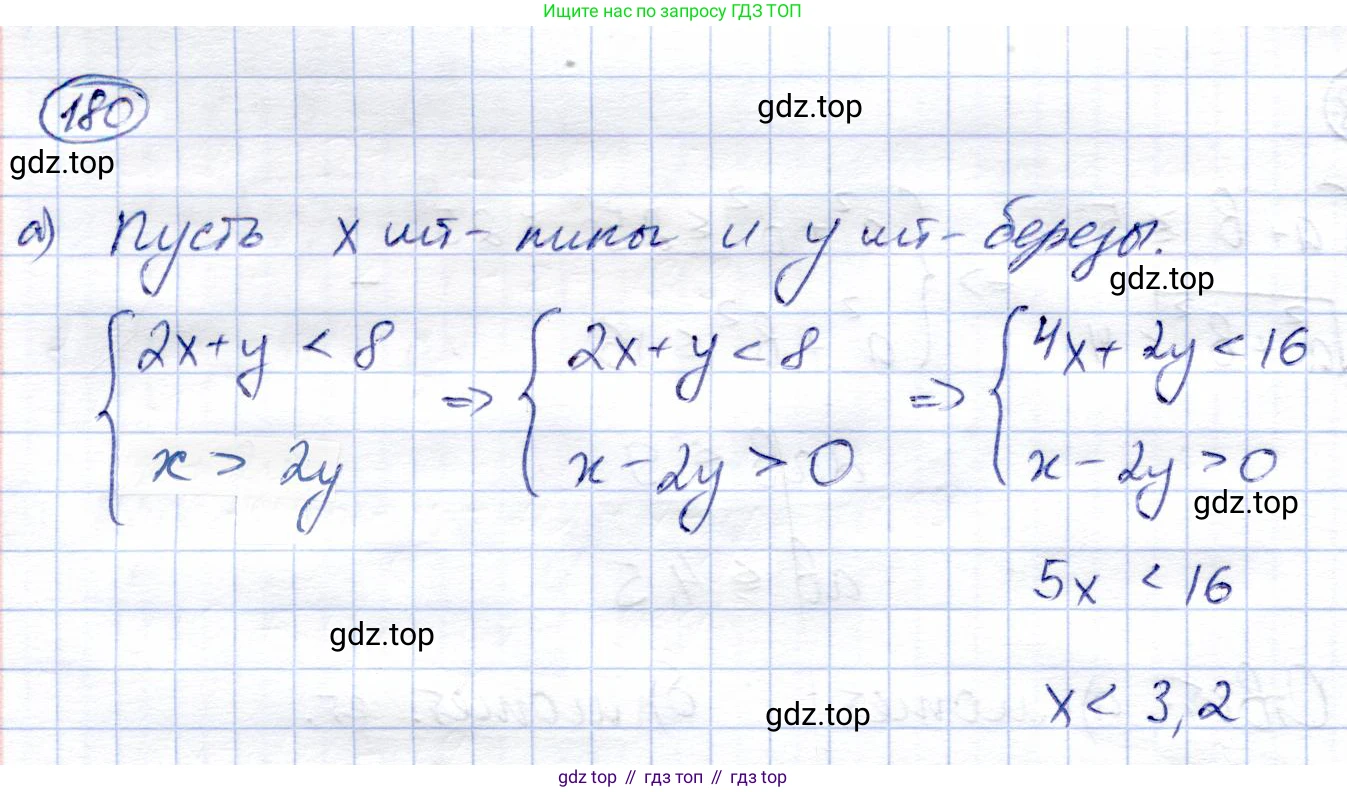 Ищите нас по запросу ГДЗ ТОП
180
gdz.top
gdz.top
а) Пусть x шт - липы и y шт - березы.
gdz.top
{ 2x+y < 8 => { 2x+y < 8 => { 4x+2y < 16
x > 2y x-2y > 0 x-2y > 0
gdz.top
5x < 16
gdz.top
x < 3,2
gdz.top
gdz top // гдз топ // гдз top